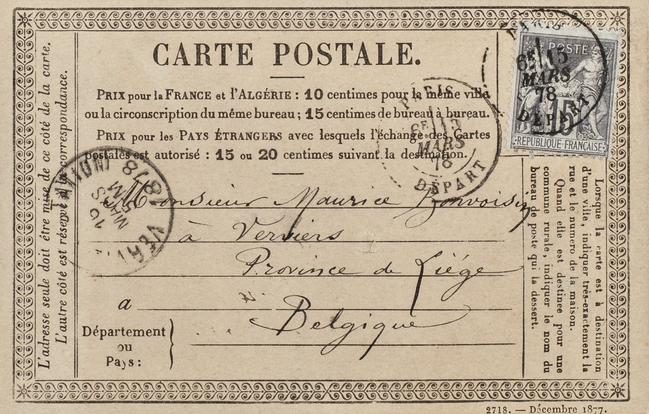 CARTE POSTALE.
PRIX pour la FRANCE et l'ALGÉRIE : 10 centimes pour la même ville
ou la circonscription du même bureau ; 15 centimes de bureau à bureau.
PRIX pour les PAYS ÉTRANGERS avec lesquels l'échange des Cartes
postales est autorisé : 15 ou 20 centimes suivant la destination.
POSTE
15
RÉPUBLIQUE FRANÇAISE
PARIS
15
MARS
78
DÉPART
PARIS
15
MARS
78
DÉPART
16
MARS
1878
L'adresse seule doit être mise de ce côté de la carte.
L'autre côté est réservé à la correspondance.
Monsieur Maurice
à Verviers
Province de Liége
a
Belgique
Département
ou
Pays :
Lorsque la carte est à destination
d'une ville, indiquer très-exactement la
rue et le numero de la maison.
Quand elle est destinée pour une
commune rurale, indiquer le nom du
bureau de poste qui la dessert.
2718. — Décembre 1877.